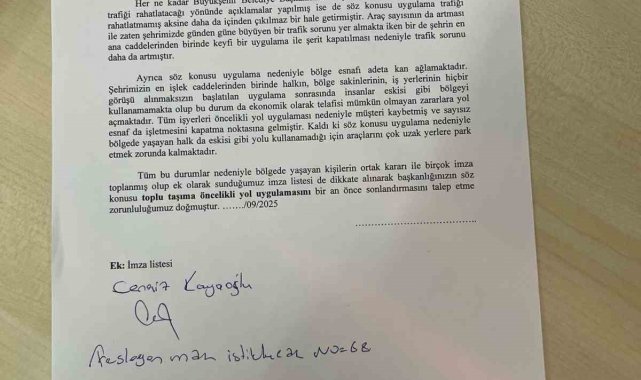 Her ne kadar Büyükşehir Belediye
trafiği rahatlatacağı yönünde açıklamalar yapılmış ise de söz konusu uygulama trafiği
rahatlatmamış aksine daha da içinden çıkılmaz bir hale getirmiştir. Araç sayısının da artması
ile zaten şehrimizde günden güne büyüyen bir trafik sorunu yer almakta iken bir de şehrin en
ana caddelerinden birinde keyfi bir uygulama ile şerit kapatılması nedeniyle trafik sorunu
daha da artmıştır.
Ayrıca söz konusu uygulama nedeniyle bölge esnafı adeta kan ağlamaktadır.
Şehrimizin en işlek caddelerinden birinde halkın, bölge sakinlerinin, iş yerlerinin hiçbir
görüşü alınmaksızın başlatılan uygulama sonrasında insanlar eskisi gibi bölgeyi
kullanamamakta olup bu durum da ekonomik olarak telafisi mümkün olmayan zararlara yol
açmaktadır. Tüm işyerleri öncelikli yol uygulaması nedeniyle müşteri kaybetmiş ve sayısız
esnaf da işletmesini kapatma noktasına gelmiştir. Kaldı ki söz konusu uygulama nedeniyle
bölgede yaşayan halk da eskisi gibi yolu kullanamadığı için araçlarını çok uzak yerlere park
etmek zorunda kalmaktadır.
Tüm bu durumlar nedeniyle bölgede yaşayan kişilerin ortak kararı ile birçok imza
toplanmış olup ek olarak sunduğumuz imza listesi de dikkate alınarak başkanlığınızın söz
konusu toplu taşıma öncelikli yol uygulamasını bir an önce sonlandırmasını talep etme
zorunluluğumuz doğmuştur. ……./09/2025
Ek: İmza listesi
Cengiz Kayaoğlu
Arslogan mah istiklal cad NO=68